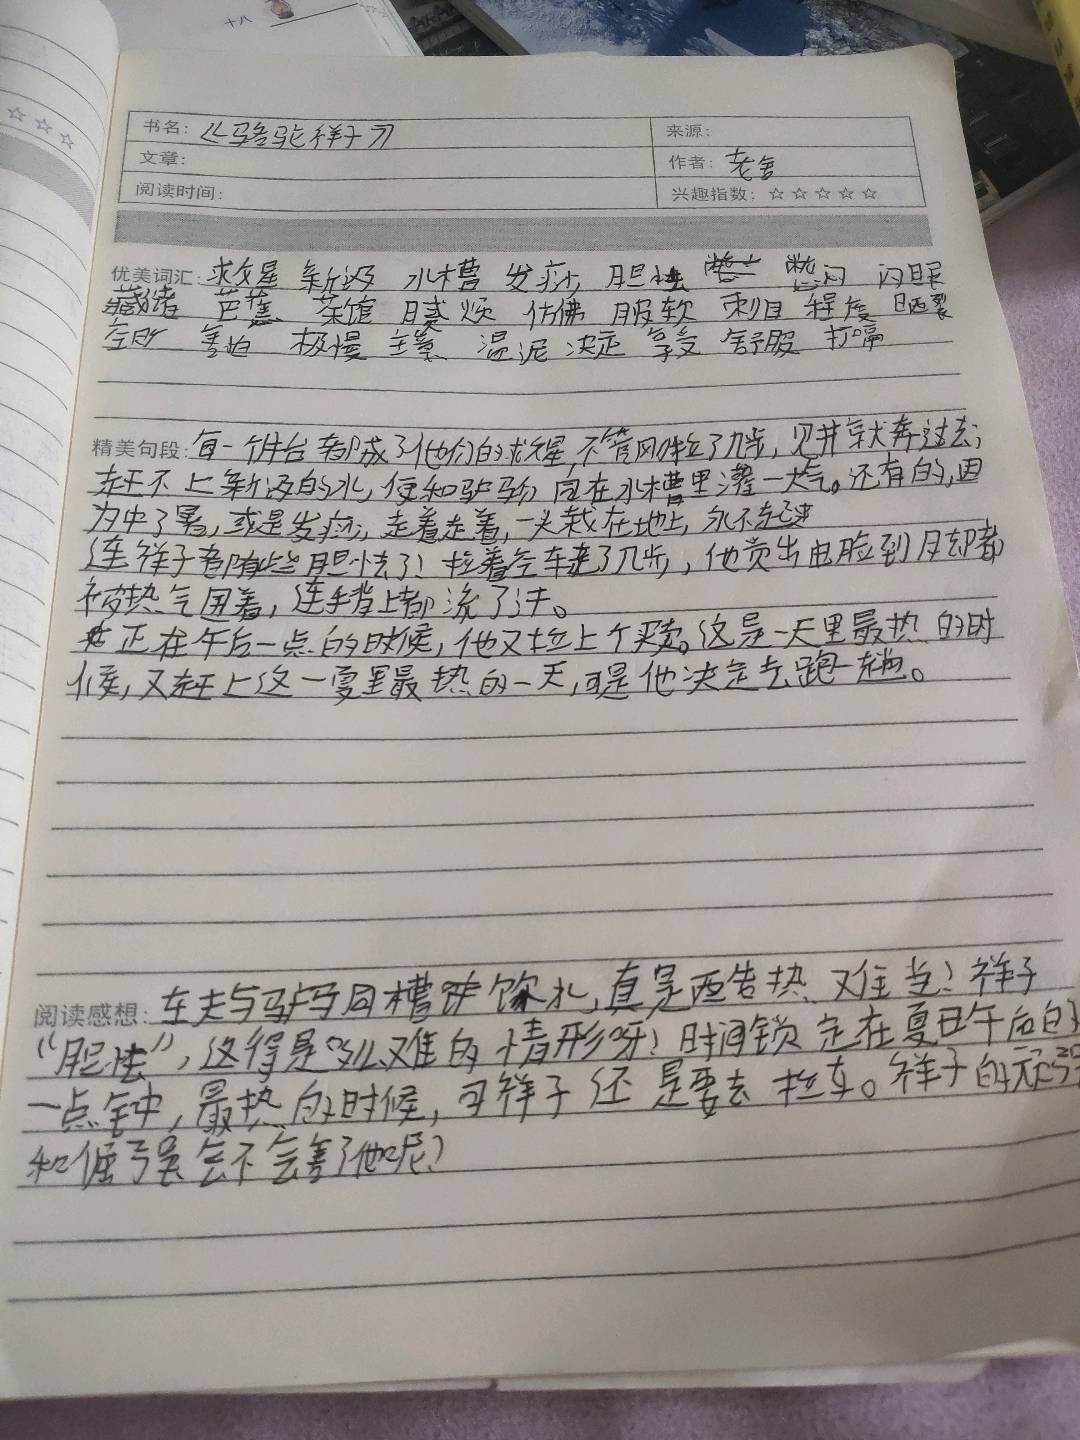 十八
☆☆☆
书名：《骆驼祥子》
来源：
文章：
作者：老舍
阅读时间：
兴趣指数：☆☆☆☆☆
优美词汇：救星 新汲 水槽 发痧 胆怯 闪 闪眼
藏绪 芭蕉 茶馆 腻烦 仿佛 服软 刺目 程度 晒裂
窘迫 极慢 温泥 决定 享受 舒服 打嗝
精美句段：每一个井台都成了他们的救星，不管刚拉了几步，见井就奔过去；
赶不上新汲的水，便和驴马们同在水槽里灌一大气。还有的，因
为中了暑，或是发痧，走着走着，一头栽在地上，永不起来
连祥子都有些胆怯了！拉着空车走了几步，他觉出由脸到脚都
被热气围着，连手背上都流了汗。
正在午后一点的时候，他又拉上个买卖。这是一天里最热的时
候，又赶上这一夏里最热的一天，可是他决定去跑一趟。
阅读感想：车夫与驴马同槽饮水，真是酷热难当！祥子
“胆怯”，这得是多么难的情形呀！时间锁定在夏日午后的
一点钟，最热的时候，可祥子还是要去拉车。祥子的
和倔强会不会害了他呢？